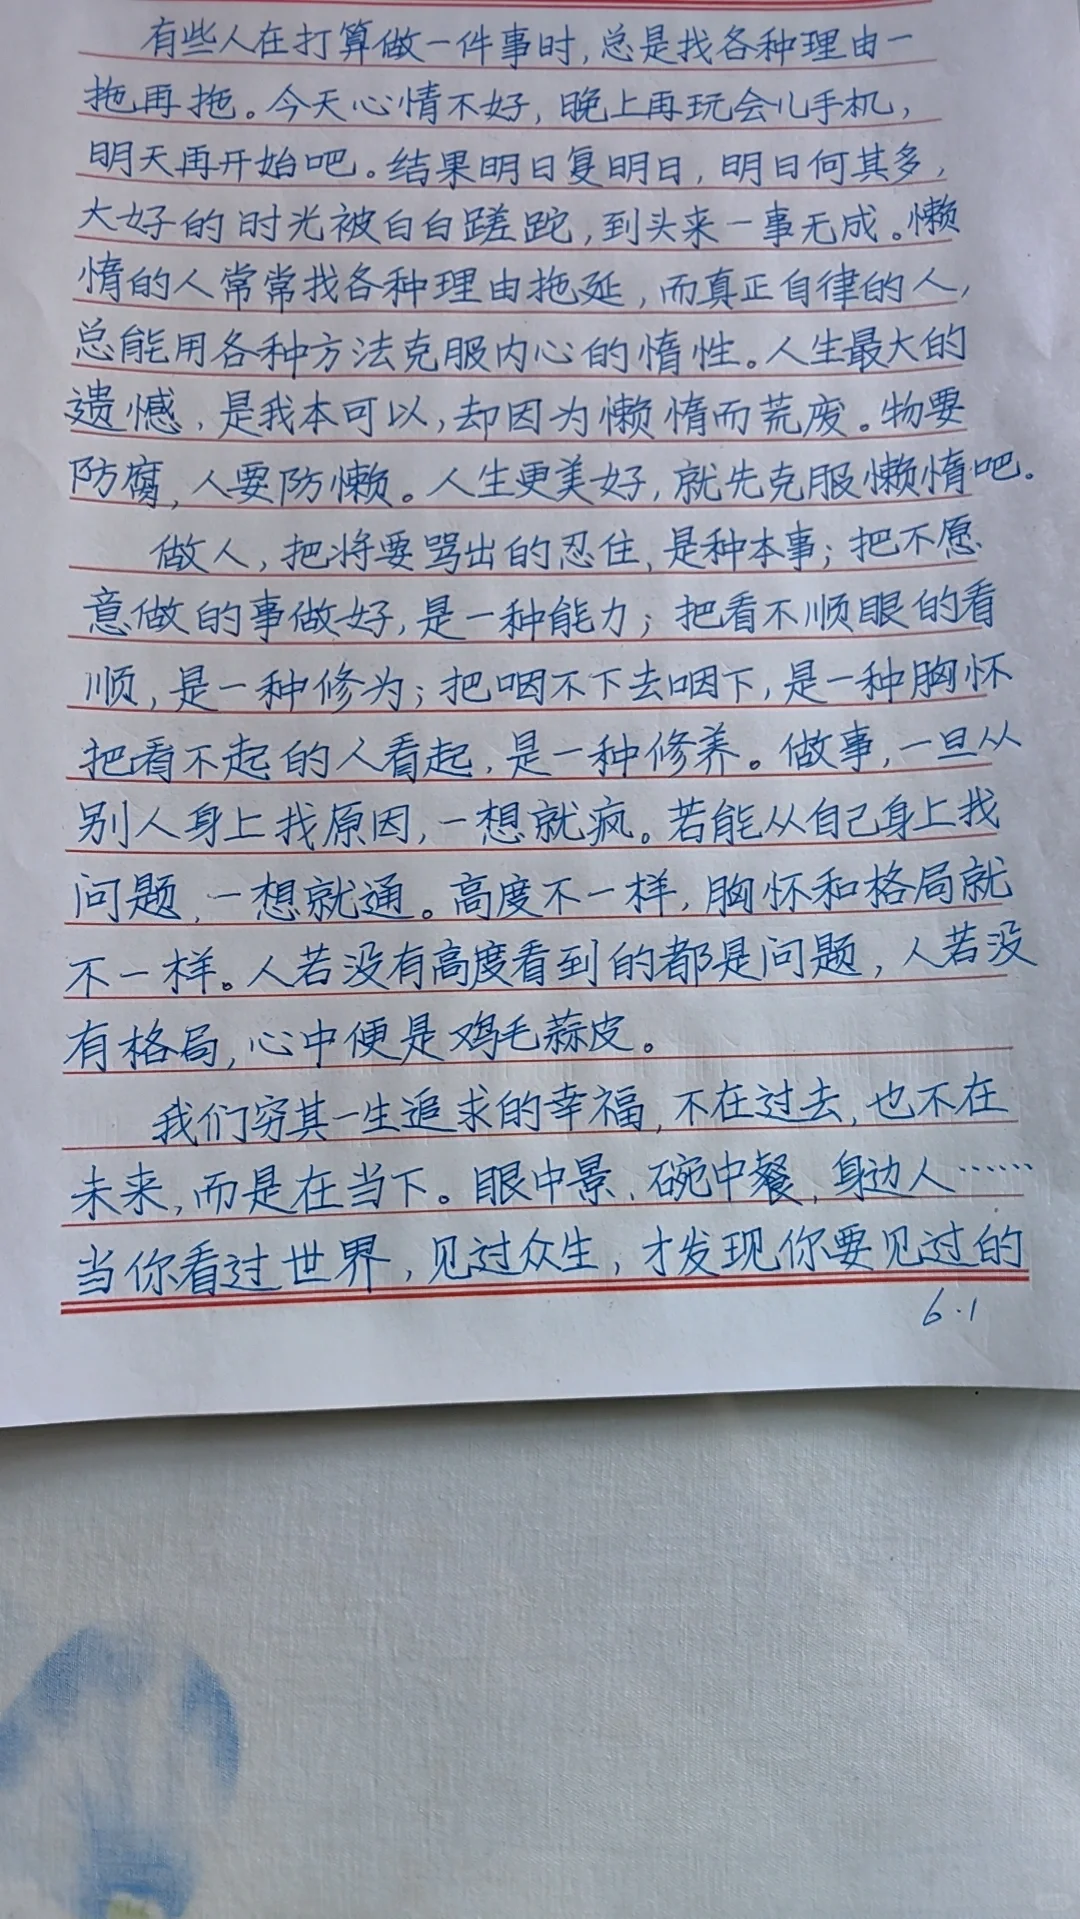 有些人在打算做一件事时,总是找各种理由一
拖再拖。今天心情不好,晚上再玩会儿手机,
明天再开始吧。结果明日复明日,明日何其多,
大好的时光被白白蹉跎,到头来一事无成。懒
惰的人常常找各种理由拖延,而真正自律的人,
总能用各种方法克服内心的惰性。人生最大的
遗憾,是我本可以,却因为懒惰而荒废。物要
防腐,人要防懒。人生更美好,就先克服懒惰吧。
做人,把将要骂出的忍住,是种本事;把不愿
意做的事做好,是一种能力;把看不顺眼的看
顺,是一种修为;把咽不下去咽下,是一种胸怀
把看不起的人看起,是一种修养。做事,一旦从
别人身上找原因,一想就疯。若能从自己身上找
问题,一想就通。高度不一样,胸怀和格局就
不一样。人若没有高度看到的都是问题,人若没
有格局,心中便是鸡毛蒜皮。
我们穷其一生追求的幸福,不在过去,也不在
未来,而是在当下。眼中景,碗中餐,身边人……
当你看过世界,见过众生,才发现你要见过的
6.1